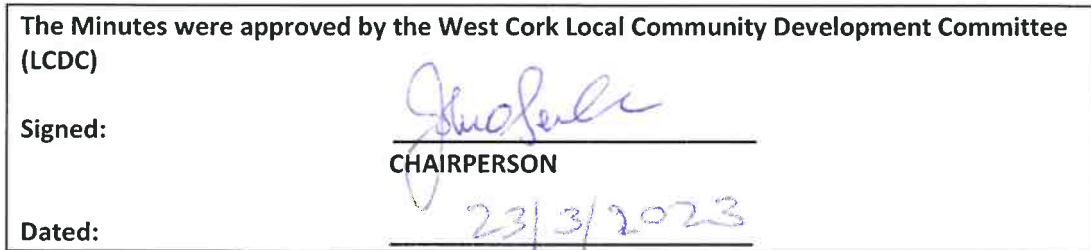 The Minutes were approved by the West Cork Local Community Development Committee
(LCDC)
Signed:
CHAIRPERSON
Dated: 23/3/2023